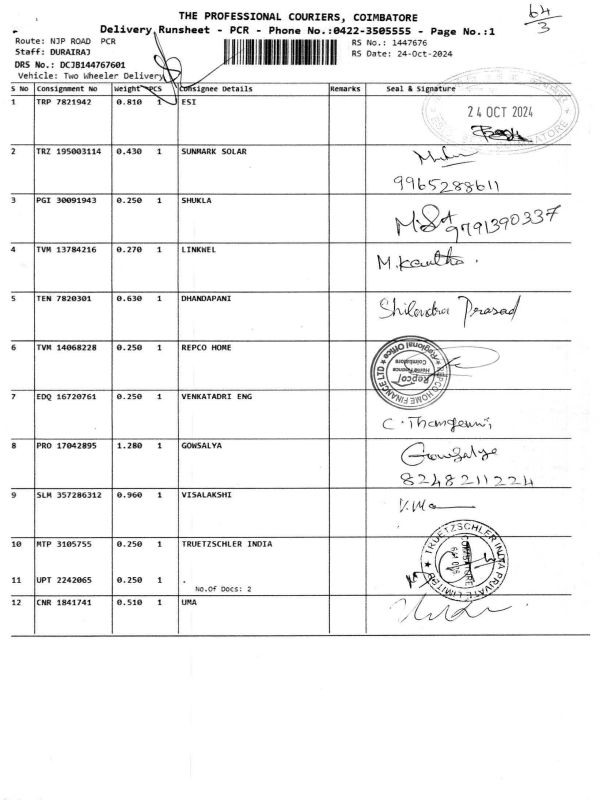 THE PROFESSIONAL COURIERS, COIMBATORE
64
3
Delivery Runsheet - PCR - Phone No.:0422-3505555 - Page No.:1
Route: NJP ROAD PCR
RS No.: 1447676
Staff: DURAIRAJ
RS Date: 24-Oct-2024
DRS No.: DCJB144767601
Vehicle: Two Wheeler Delivery
S No Consignment No Weight PCS Consignee Details Remarks Seal & Signature
1 TRP 7821942 0.810 1 ESI
24 OCT 2024
2 TRZ 195003114 0.430 1 SUNMARK SOLAR
9965288611
3 PGI 30091943 0.250 1 SHUKLA
9791390337
4 TVM 13784216 0.270 1 LINKWEL
M.Kavitha.
5 TEN 7820301 0.630 1 DHANDAPANI
Shilendra Prasad
6 TVM 14068228 0.250 1 REPCO HOME
REPCO HOME FINANCE LTD ★ Regional Office ★
Repco
Home Finance
Coimbatore
7 EDQ 16720761 0.250 1 VENKATADRI ENG
8 PRO 17042895 1.280 1 GOWSALYA
Gowsalya
8248211224
9 SLM 357286312 0.960 1 VISALAKSHI
10 MTP 3105755 0.250 1 TRUETZSCHLER INDIA
★ TRUETZSCHLER INDIA PRIVATE LIMITED
COIMBATORE
11 UPT 2242065 0.250 1 .
No.Of Docs: 2
12 CNR 1841741 0.510 1 UMA